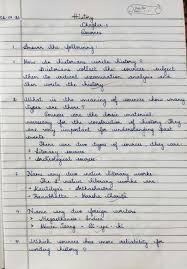 History
Chapter - 1
Sources
1. Answer the following :
1. How do historians write history ?
Historians collect the sources, subject
then to critical examination analysis and
then write the history.
2. What is the meaning of sources how many
types are there ?
Sources are the basic material
necessary for the construction of history They
are very important for understanding past
events
There are two types of sources they are:-
Literary sources
Archeological sources
3. Name any two native literary works
The 2 native literary works are
Kautilya's - Arthashastra
Banabhatta - Harsha charite
4. Name any two foreign writers
Megasthenes - Indica
Hiuen Tsang - Si-yu-ki
5. Which sources has more reliability for
writing history ?